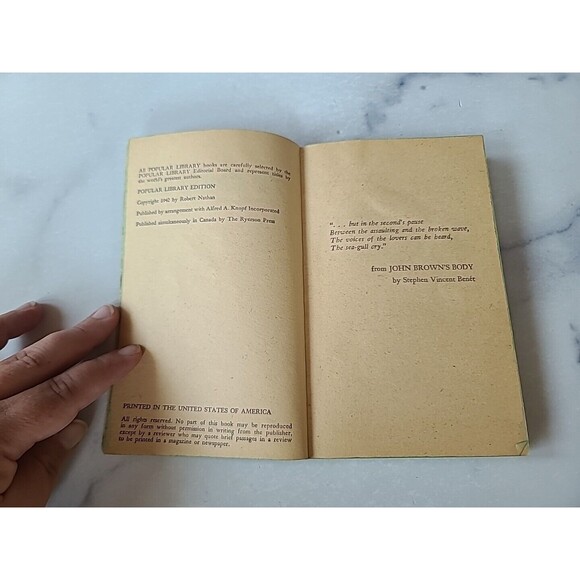 All POPULAR LIBRARY books are carefully selected by the
POPULAR LIBRARY Editorial Board and represent titles by
the world's greatest authors.
POPULAR LIBRARY EDITION
Copyright 1947 by Robert Nathan
Published by arrangement with Alfred A. Knopf Incorporated
Published simultaneously in Canada by The Ryerson Press
PRINTED IN THE UNITED STATES OF AMERICA
All rights reserved. No part of this book may be reproduced
in any form without permission in writing from the publisher,
except by a reviewer who may quote brief passages in a review
to be printed in a magazine or newspaper.
". . . but in the second's pause
Between the assaulting and the broken wave,
The voices of the lovers can be heard,
The sea-gull cry."
from JOHN BROWN'S BODY
by Stephen Vincent Benét